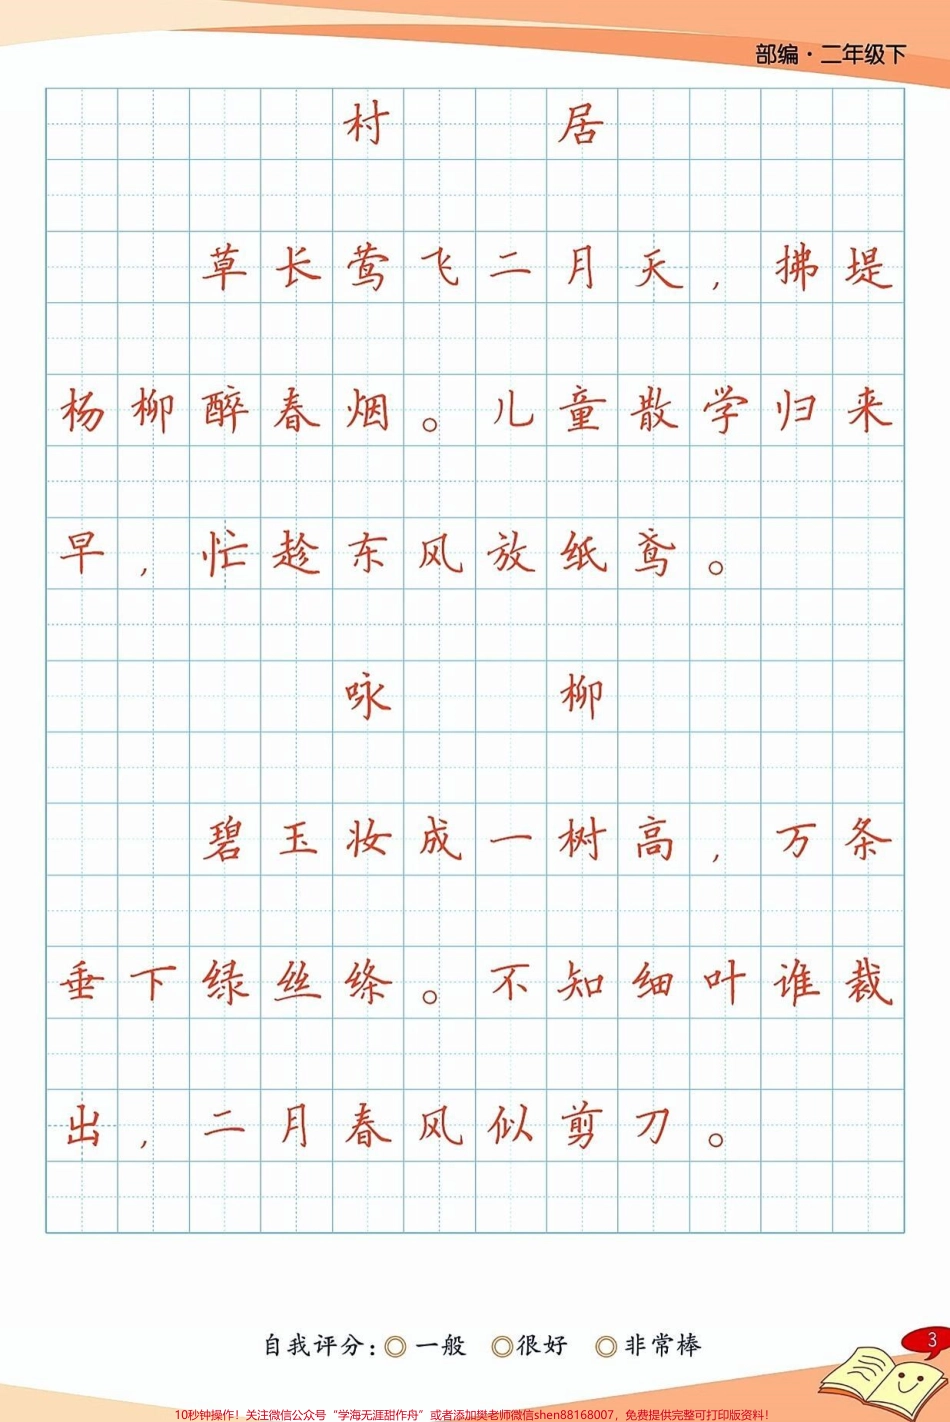 部编·二年级下
村 居
草长莺飞二月天，拂堤
杨柳醉春烟。儿童散学归来
早，忙趁东风放纸鸢。
咏 柳
碧玉妆成一树高，万条
垂下绿丝绦。不知细叶谁裁
出，二月春风似剪刀。
自我评分：◎一般 ◎很好 ◎非常棒
3
10秒钟操作！关注微信公众号“学海无涯甜作舟”或者添加樊老师微信shen88168007，免费提供完整可打印版资料！